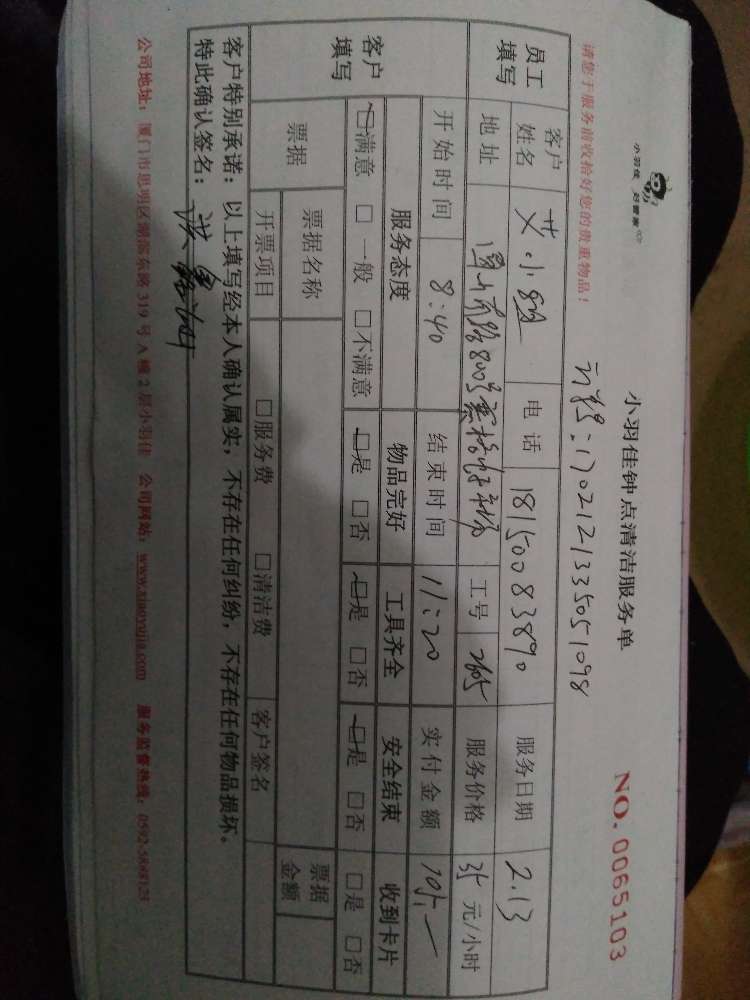 小羽佳 好管家
小羽佳钟点清洁服务单
NO. 0065103
请您于服务前收拾好您的贵重物品！
1702121335051098
员工填写 客户姓名 艾小姐 电话 18150083890 服务日期 2.13
地址 800号 工号 服务价格 35 元/小时
开始时间 8:40 结束时间 11:20 实付金额 105.—
客户填写 服务态度 物品完好 工具齐全 安全结束 收到卡片
☑满意 □一般 □不满意 ☑是 □否 ☑是 □否 ☑是 □否 □是 □否
票据 票据名称 票据金额
开票项目 □服务费 □清洁费 客户签名
客户特别承诺：以上填写经本人确认属实，不存在任何纠纷，不存在任何物品损坏。
特此确认签名：
公司地址：厦门市思明区湖滨东路 319 号 A 幢 2 层小羽佳 公司网站：www.xiaoyujia.com 服务监督热线：0592-5888125